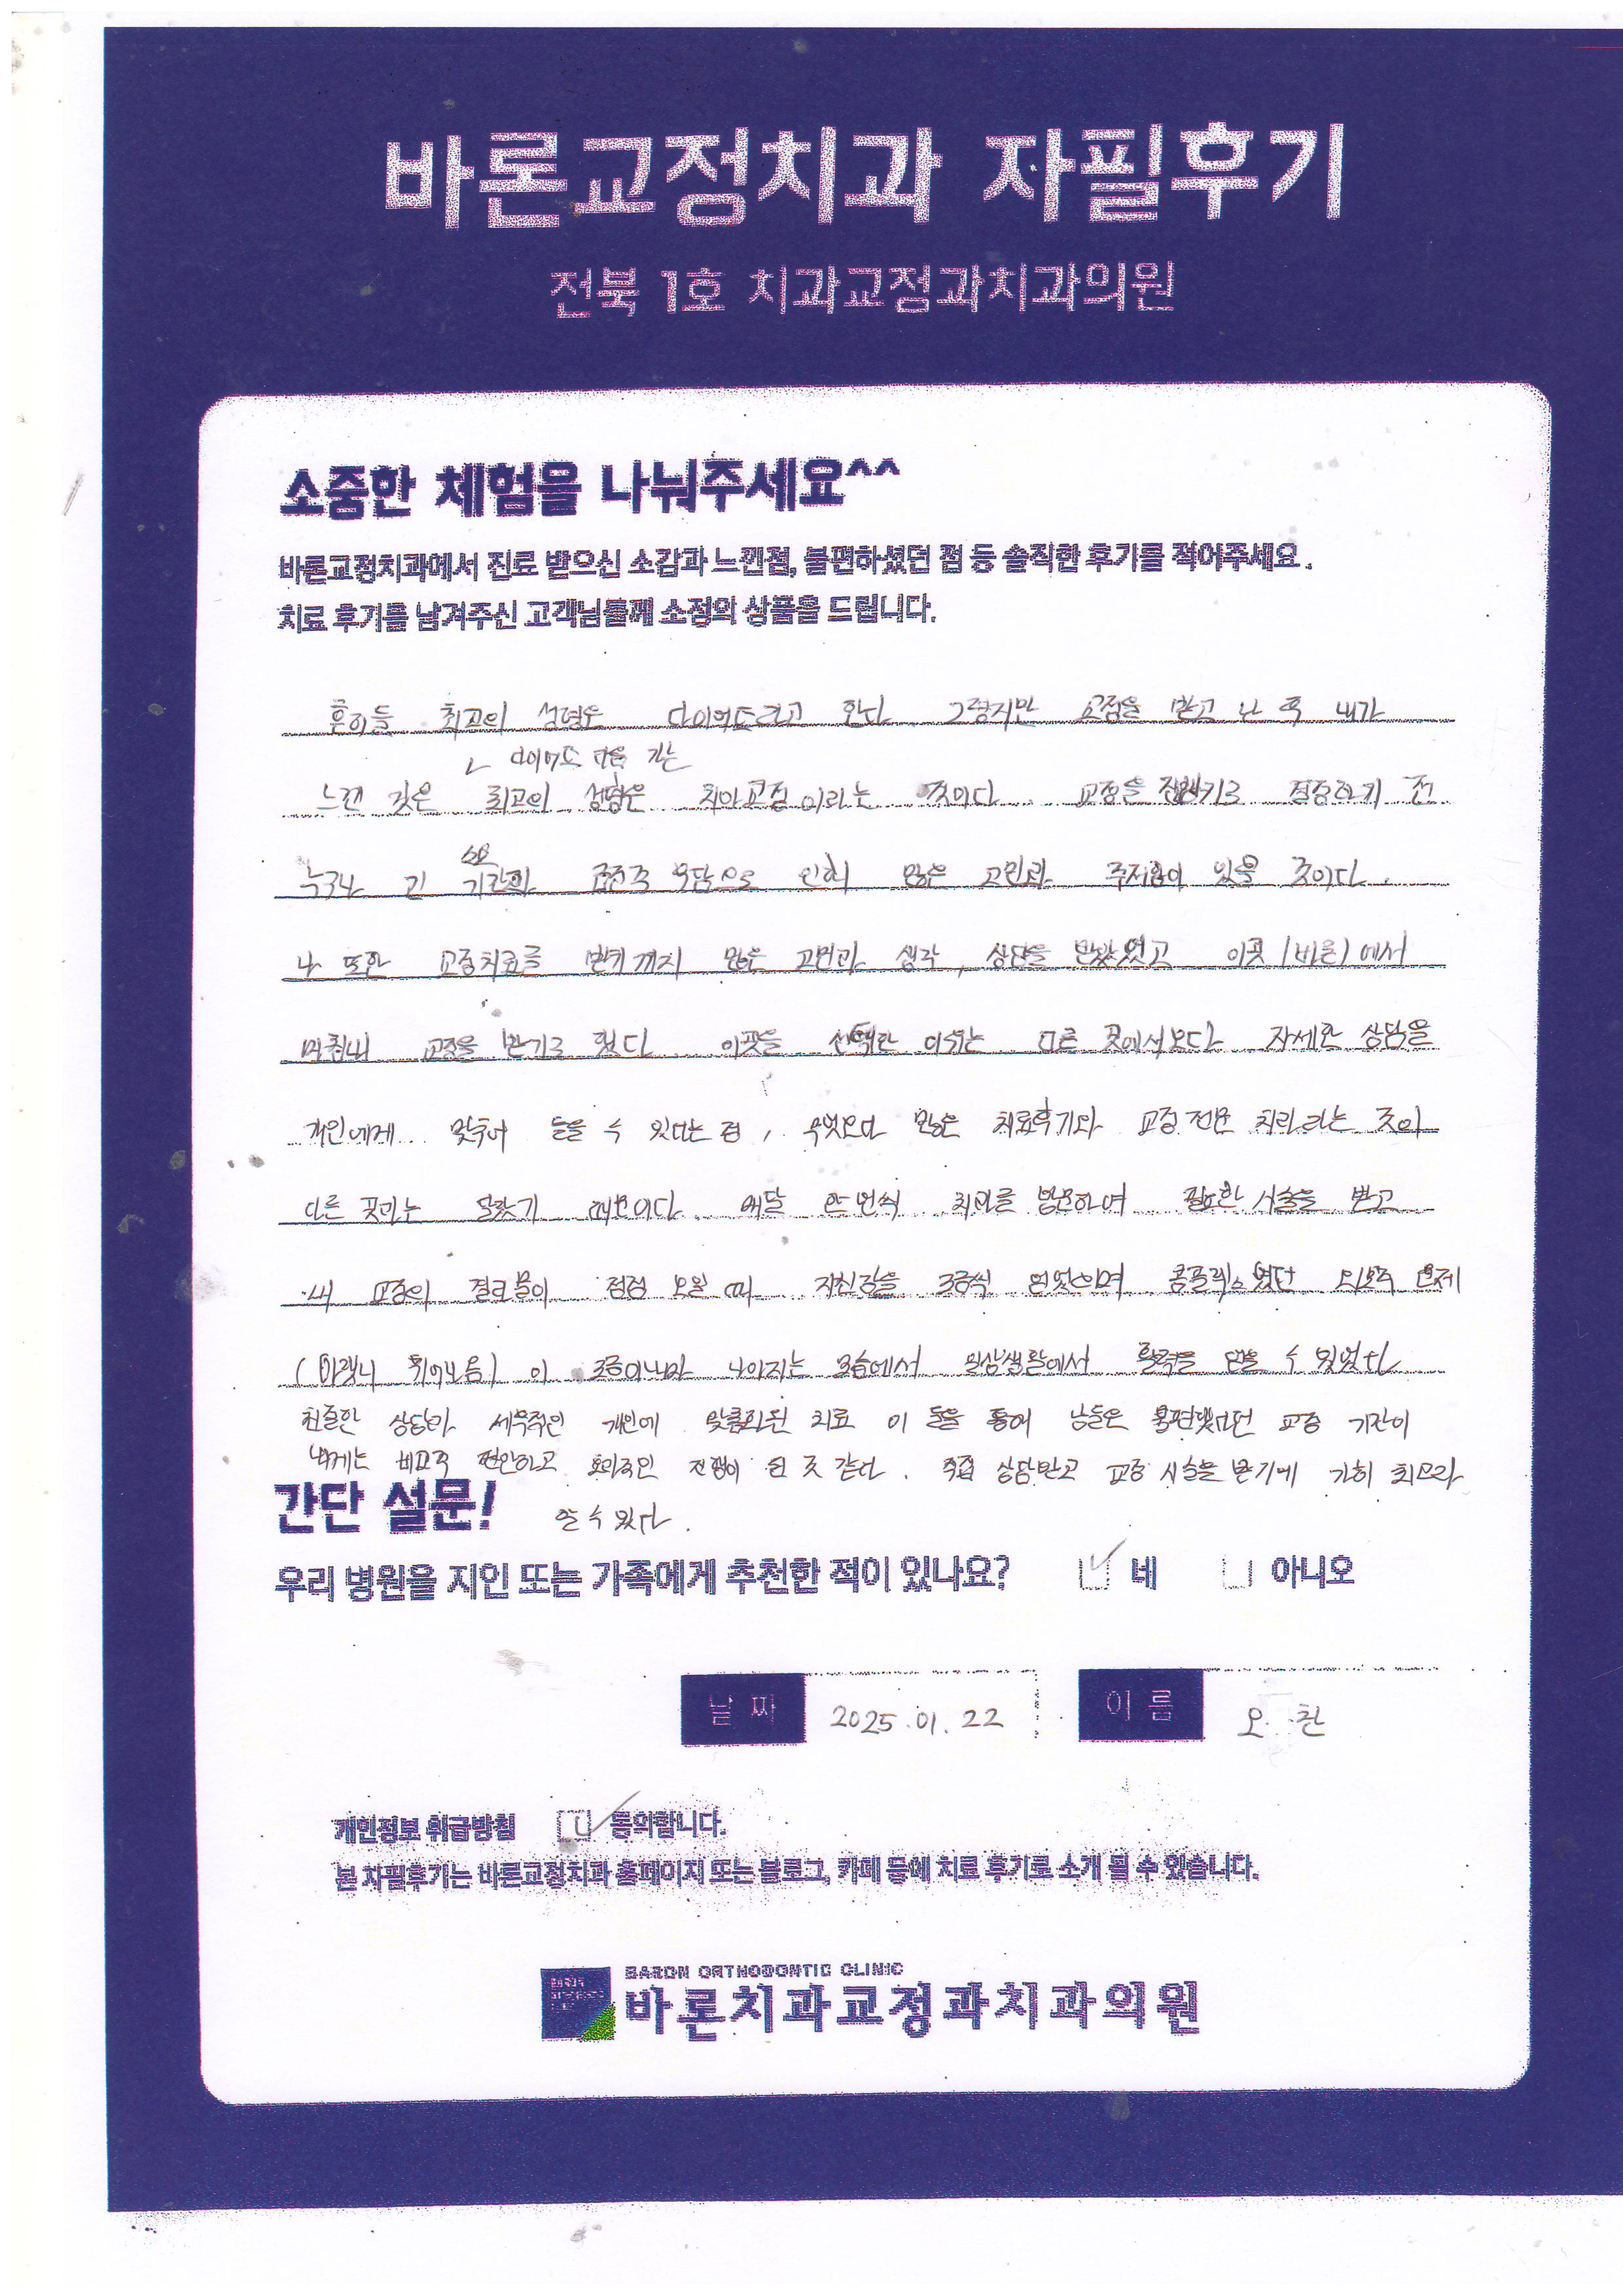 바론교정치과 자필후기
전북 1호 치과교정과치과의원
소중한 체험을 나눠주세요^^
바른교정치과에서 진료 받으신 소감과 느낀점, 불편하셨던 점 등 솔직한 후기를 적어주세요.
치료 후기를 남겨주신 고객님들께 소정의 상품을 드립니다.
흔히들 최고의 성형은 다이어트라고 한다 그렇지만 교정을 받고 난 후 내가
다이어트 다음 가는
느낀 것은 최고의 성형은 치아교정이라는 것이다 교정을 결정하기 전
누구나 긴 기간과 금전적 부담으로 인해 많은 고민과 주저함이 있을 것이다.
나 또한 교정치료를 받기까지 많은 고민과 생각, 상담을 받았었고 이곳 (바른)에서
마침내 교정을 받기로 했다 이곳을 선택한 이유는 다른 곳에서보다 자세한 상담을
개인에게 맞추어 들을 수 있다는 점, 무엇보다 많은 치료후기와 교정 전문 치과라는 것이
다른 곳과는 달랐기 때문이다 매달 한 번씩 치과를 방문하여 필요한 시술을 받고
내 교정의 결과물이 점점 보일 때 자신감을 조금씩 얻었으며 콤플렉스였던 외모적 문제
(아랫니 튀어나옴)이 조금이나마 나아지는 모습에서 일상생활에서 활력을 얻을 수 있었다
친절한 상담과 세부적인 개인에 맞춤화된 치료 이 둘을 통해 남들은 불편했다던 교정 기간이
내게는 비교적 편안하고 효과적인 전평이 된 것 같다. 직접 상담받고 교정 시술을 받기에 가히 최고라
할 수 있다.
간단 설문!
우리 병원을 지인 또는 가족에게 추천한 적이 있나요? 네 아니오
날짜 2025.01.22 이름 오 찬
개인정보 취급방침 동의합니다.
본 자필후기는 바른교정치과 홈페이지 또는 블로그, 카페 등에 치료 후기로 소개 될 수 있습니다.
BARON ORTHODONTIC CLINIC
바론치과교정과치과의원